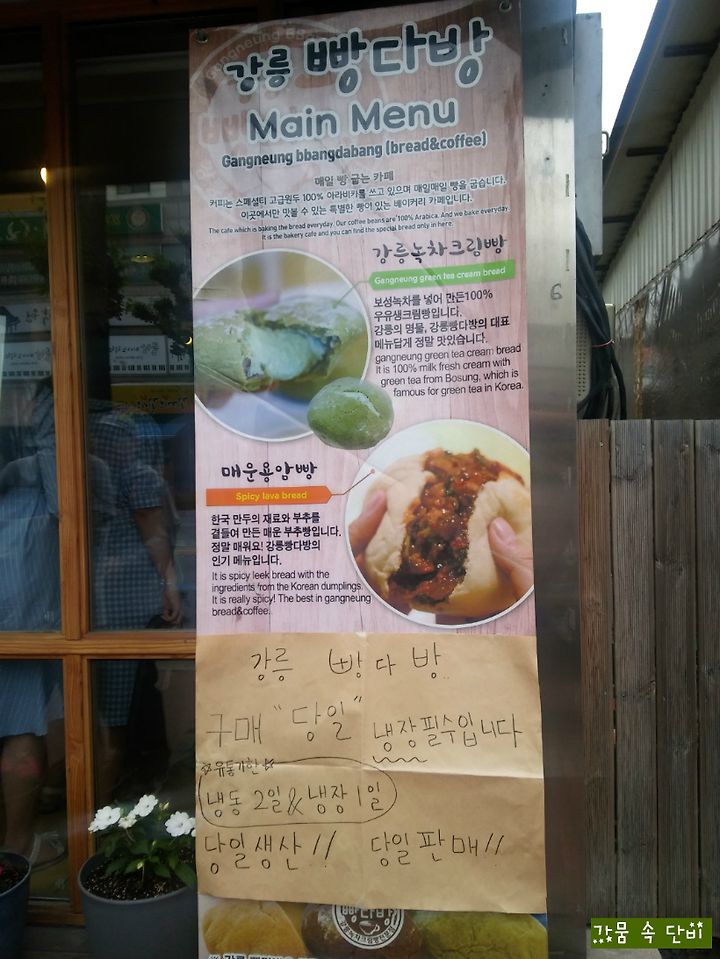 강릉 빵다방
Main Menu
Gangneung bbangdabang (bread&coffee)
매일 빵 굽는 카페
커피는 스페셜티 고급원두 100% 아라비카를 쓰고 있으며 매일매일 빵을 굽습니다.
이곳에서만 맛볼 수 있는 특별한 빵이 있는 베이커리 카페입니다.
The cafe which is baking the bread everyday. Our coffee beans are 100% Arabica. And we bake everyday.
It is the bakery cafe and you can find the special bread only in here.
강릉녹차크림빵
Gangneung green tea cream bread
보성녹차를 넣어 만든100%
우유생크림빵입니다.
강릉의 명물, 강릉빵다방의 대표
메뉴답게 정말 맛있습니다.
gangneung green tea cream bread
It is 100% milk fresh cream with
green tea from Bosung, which is
famous for green tea in Korea.
매운용암빵
Spicy lava bread
한국 만두의 재료와 부추를
곁들여 만든 매운 부추빵입니다.
정말 매워요! 강릉빵다방의
인기 메뉴입니다.
It is spicy leek bread with the
ingredients from the Korean dumplings.
It is really spicy! The best in gangneung
bread&coffee.
강릉 빵다방
구매 "당일" 냉장필수입니다
☆유통기한☆
냉동 2일 & 냉장 1일
당일생산!! 당일판매!!
빵다방
6
가뭄 속 단비